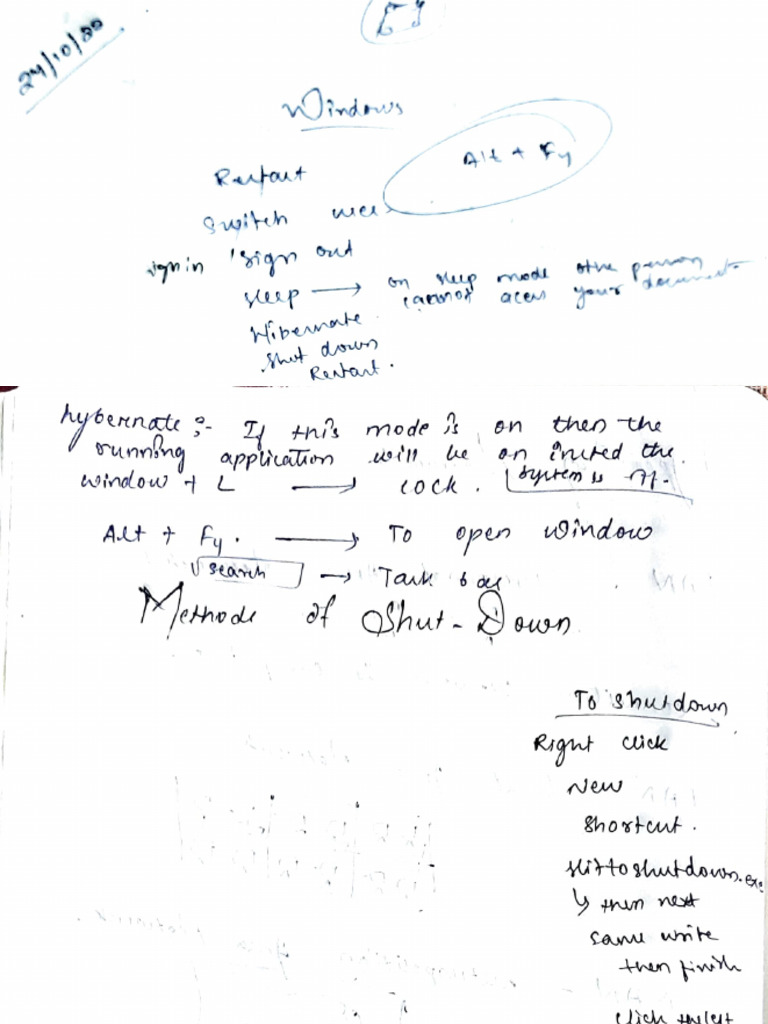 24/10/20
Windows
Alt + F4
Restart
Switch user
sign in sign out
sleep → on sleep mode othe person
cannot acess your document
Hibernate
shut down
Restart.
hybernate :- If this mode is on then the
running application will be on
window + L → lock. system is
Alt + F4. → To open window
search → Task bar
Methods of Shut-Down
To shutdown
Right click
New
shortcut.
slittoshutdown.exe
↳ then next
same write
then finish
click the